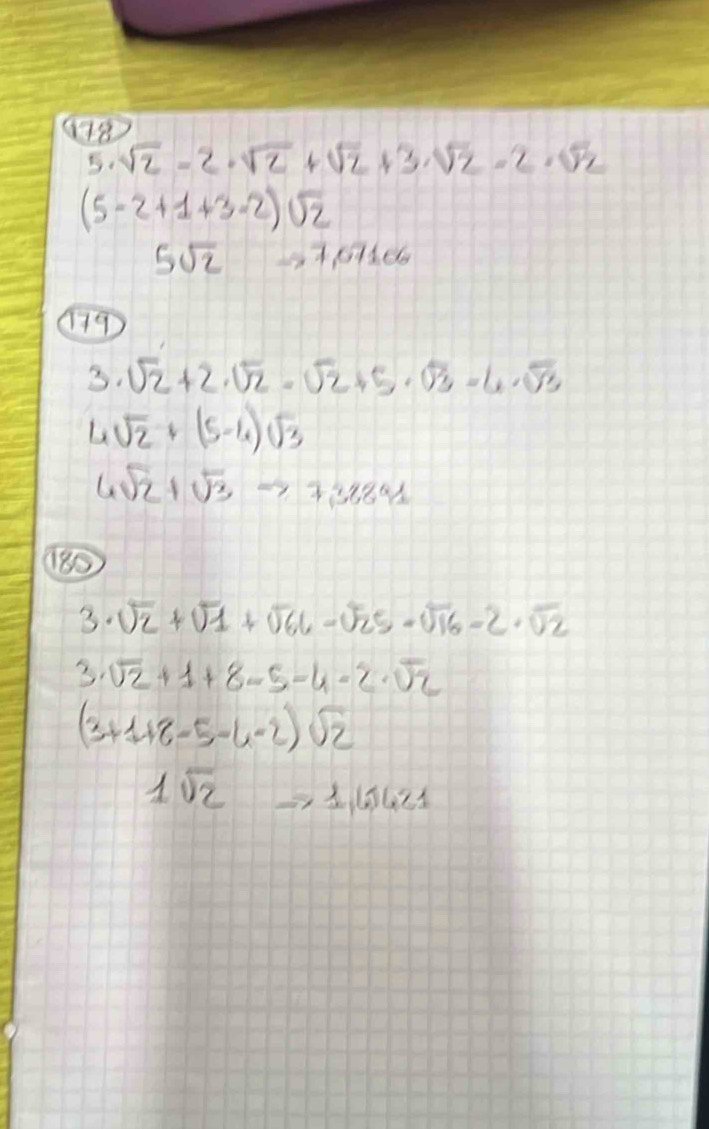 178
5·√2 - 2·√2 + √2 + 3·√2 - 2·√2
(5-2+1+3-2)√2
5√2 → 7,07106
179
3·√2 + 2·√2 - √2 + 5·√3 - 4·√3
4√2 + (5-4)√3
4√2 + √3 → 7,38891
180
3·√2 + √1 + √64 - √25 - √16 - 2·√2
3·√2 + 1 + 8 - 5 - 4 - 2·√2
(3+1+8-5-4-2)√2
1√2 → 1,41421